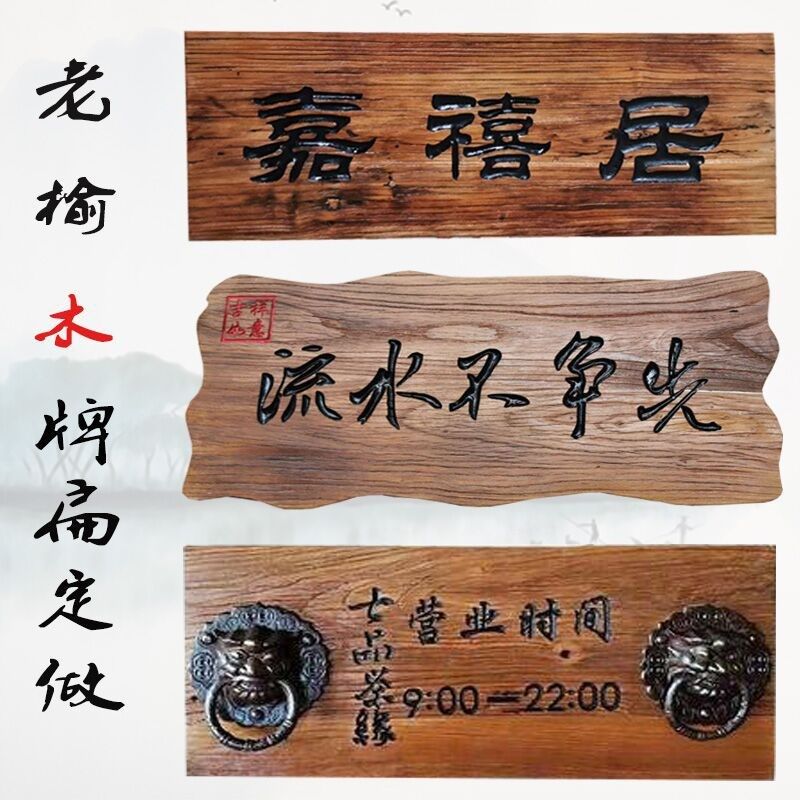 老榆木牌扁定做
嘉禧居
吉祥如意
流水不争先
七品茶缘
营业时间
9:00—22:00